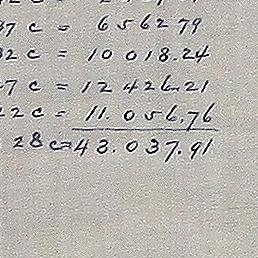 37 c = 6562 79
32 c = 10 018.24
47 c = 12 426.21
22 c = 11.056.76
28 c= 43.037.91